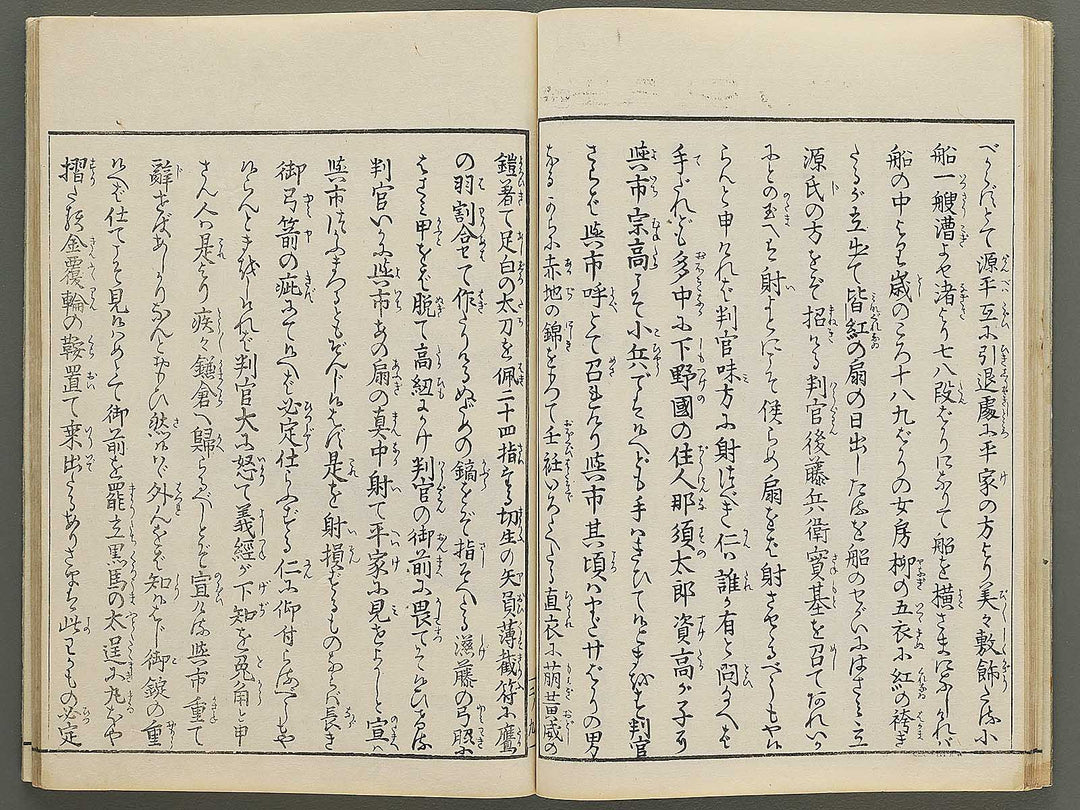 べからずとて源平互に引退處に平家の方より美々敷飾たる小
船一艘漕よせ渚より七八段ばかりになりて船を横さまになしければ
船の中より歳のころ十八九ばかりの女房柳の五衣に紅の袴き
たるが立出て皆紅の扇の日出したるを船のせがいにはさミ立
源氏の方をぞ招ける判官後藤兵衛實基を召てあれいか
にとの玉へば射よとにこそ候らめ扇をば射させらるべうもや候
らんと申ければ判官味方に射つべき仁は誰か有と問給へば
手だれども多中に下野國の住人那須太郎資高が子に
與市宗高こそ小兵で候へども手はきひて候と申す判官
さらば與市呼とて召されたり與市其頃はいまだ廿ばかりの男
なりかちに赤地の錦をもつて壬衽いろへたる直衣に萌黄威の
鎧着て足白の太刀を佩二十四指たる切生の矢負薄截符に鷹
の羽割合せて作たりけるぬための鏑をぞ指そへたる滋藤の弓脇に
はさミ甲をば脱て高紐にかけ判官の御前に畏てぞさむらひける
判官いかに與市あの扇の真中射て平家に見せよかしと宣へば
與市つかまつるともぞんじ候はず是を射損ずるものならば長き
御弓箭の疵にて候べし必定仕らふずる仁に仰付らるべしや
候らんと申ければ判官大に怒て義經が下知を
さん人は是より疾々鎌倉へ歸らるべしとぞ宣ける與市重て
辞せばあしかりなんとや思ひ然候はば外れんをば知候はず御錠の重
候へば仕てこそ見候はめとて御前を罷立黒馬の太逞に丸ほや
摺たる金覆輪の鞍置て乗出たるありさまは此わかもの必定